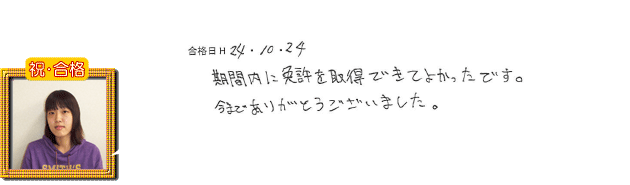 合格日 H 24・10・24
祝・合格
期間内に免許を取得できてよかったです。
今までありがとうございました。